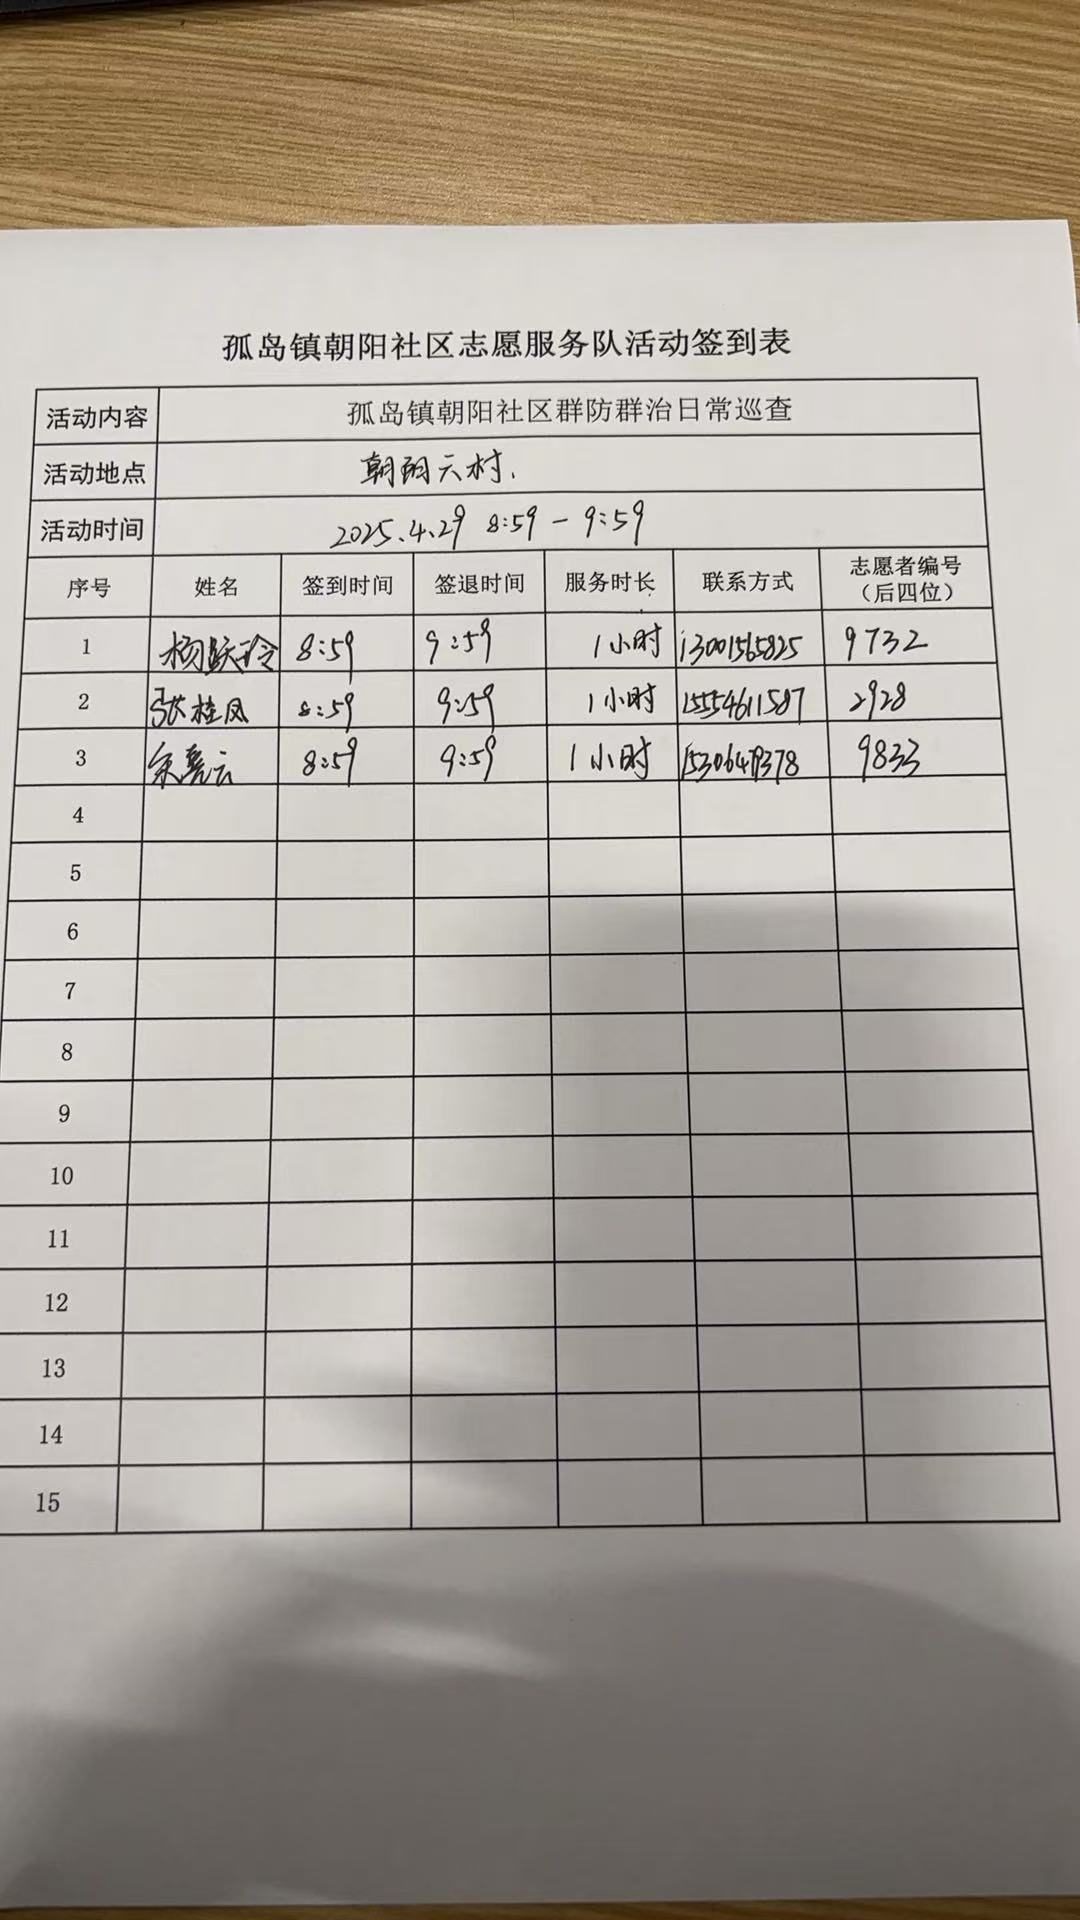 孤岛镇朝阳社区志愿服务队活动签到表
活动内容 孤岛镇朝阳社区群防群治日常巡查
活动地点 朝阳六村.
活动时间 2025.4.29 8:59-9:59
序号 姓名 签到时间 签退时间 服务时长 联系方式 志愿者编号（后四位）
1 杨跃玲 8:59 9:59 1小时 13001565825 9732
2 张桂凤 8:59 9:59 1小时 15554611587 2928
3 8:59 9:59 1小时 9833
4
5
6
7
8
9
10
11
12
13
14
15